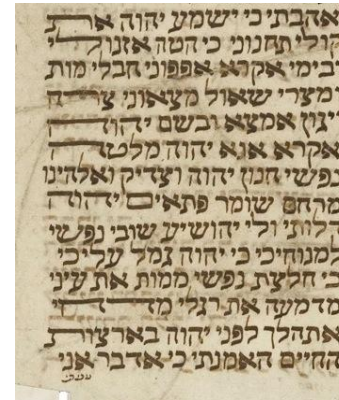 אהבתי כי ישמע יהוה את
קולי תחנוני כי הטה אזנו לי
ובימי אקרא אפפוני חבלי מות
ומצרי שאול מצאוני צרה
ויגון אמצא ובשם יהוה
אקרא אנא יהוה מלטה
נפשי חנון יהוה וצדיק ואלהינו
מרחם שומר פתאים יהוה
דלותי ולי יהושיע שובי נפשי
למנוחיכי כי יהוה גמל עליכי
כי חלצת נפשי ממות את עיני
מדמעה את רגלי מדחי
אתהלך לפני יהוה בארצות
החיים האמנתי כי אדבר אני